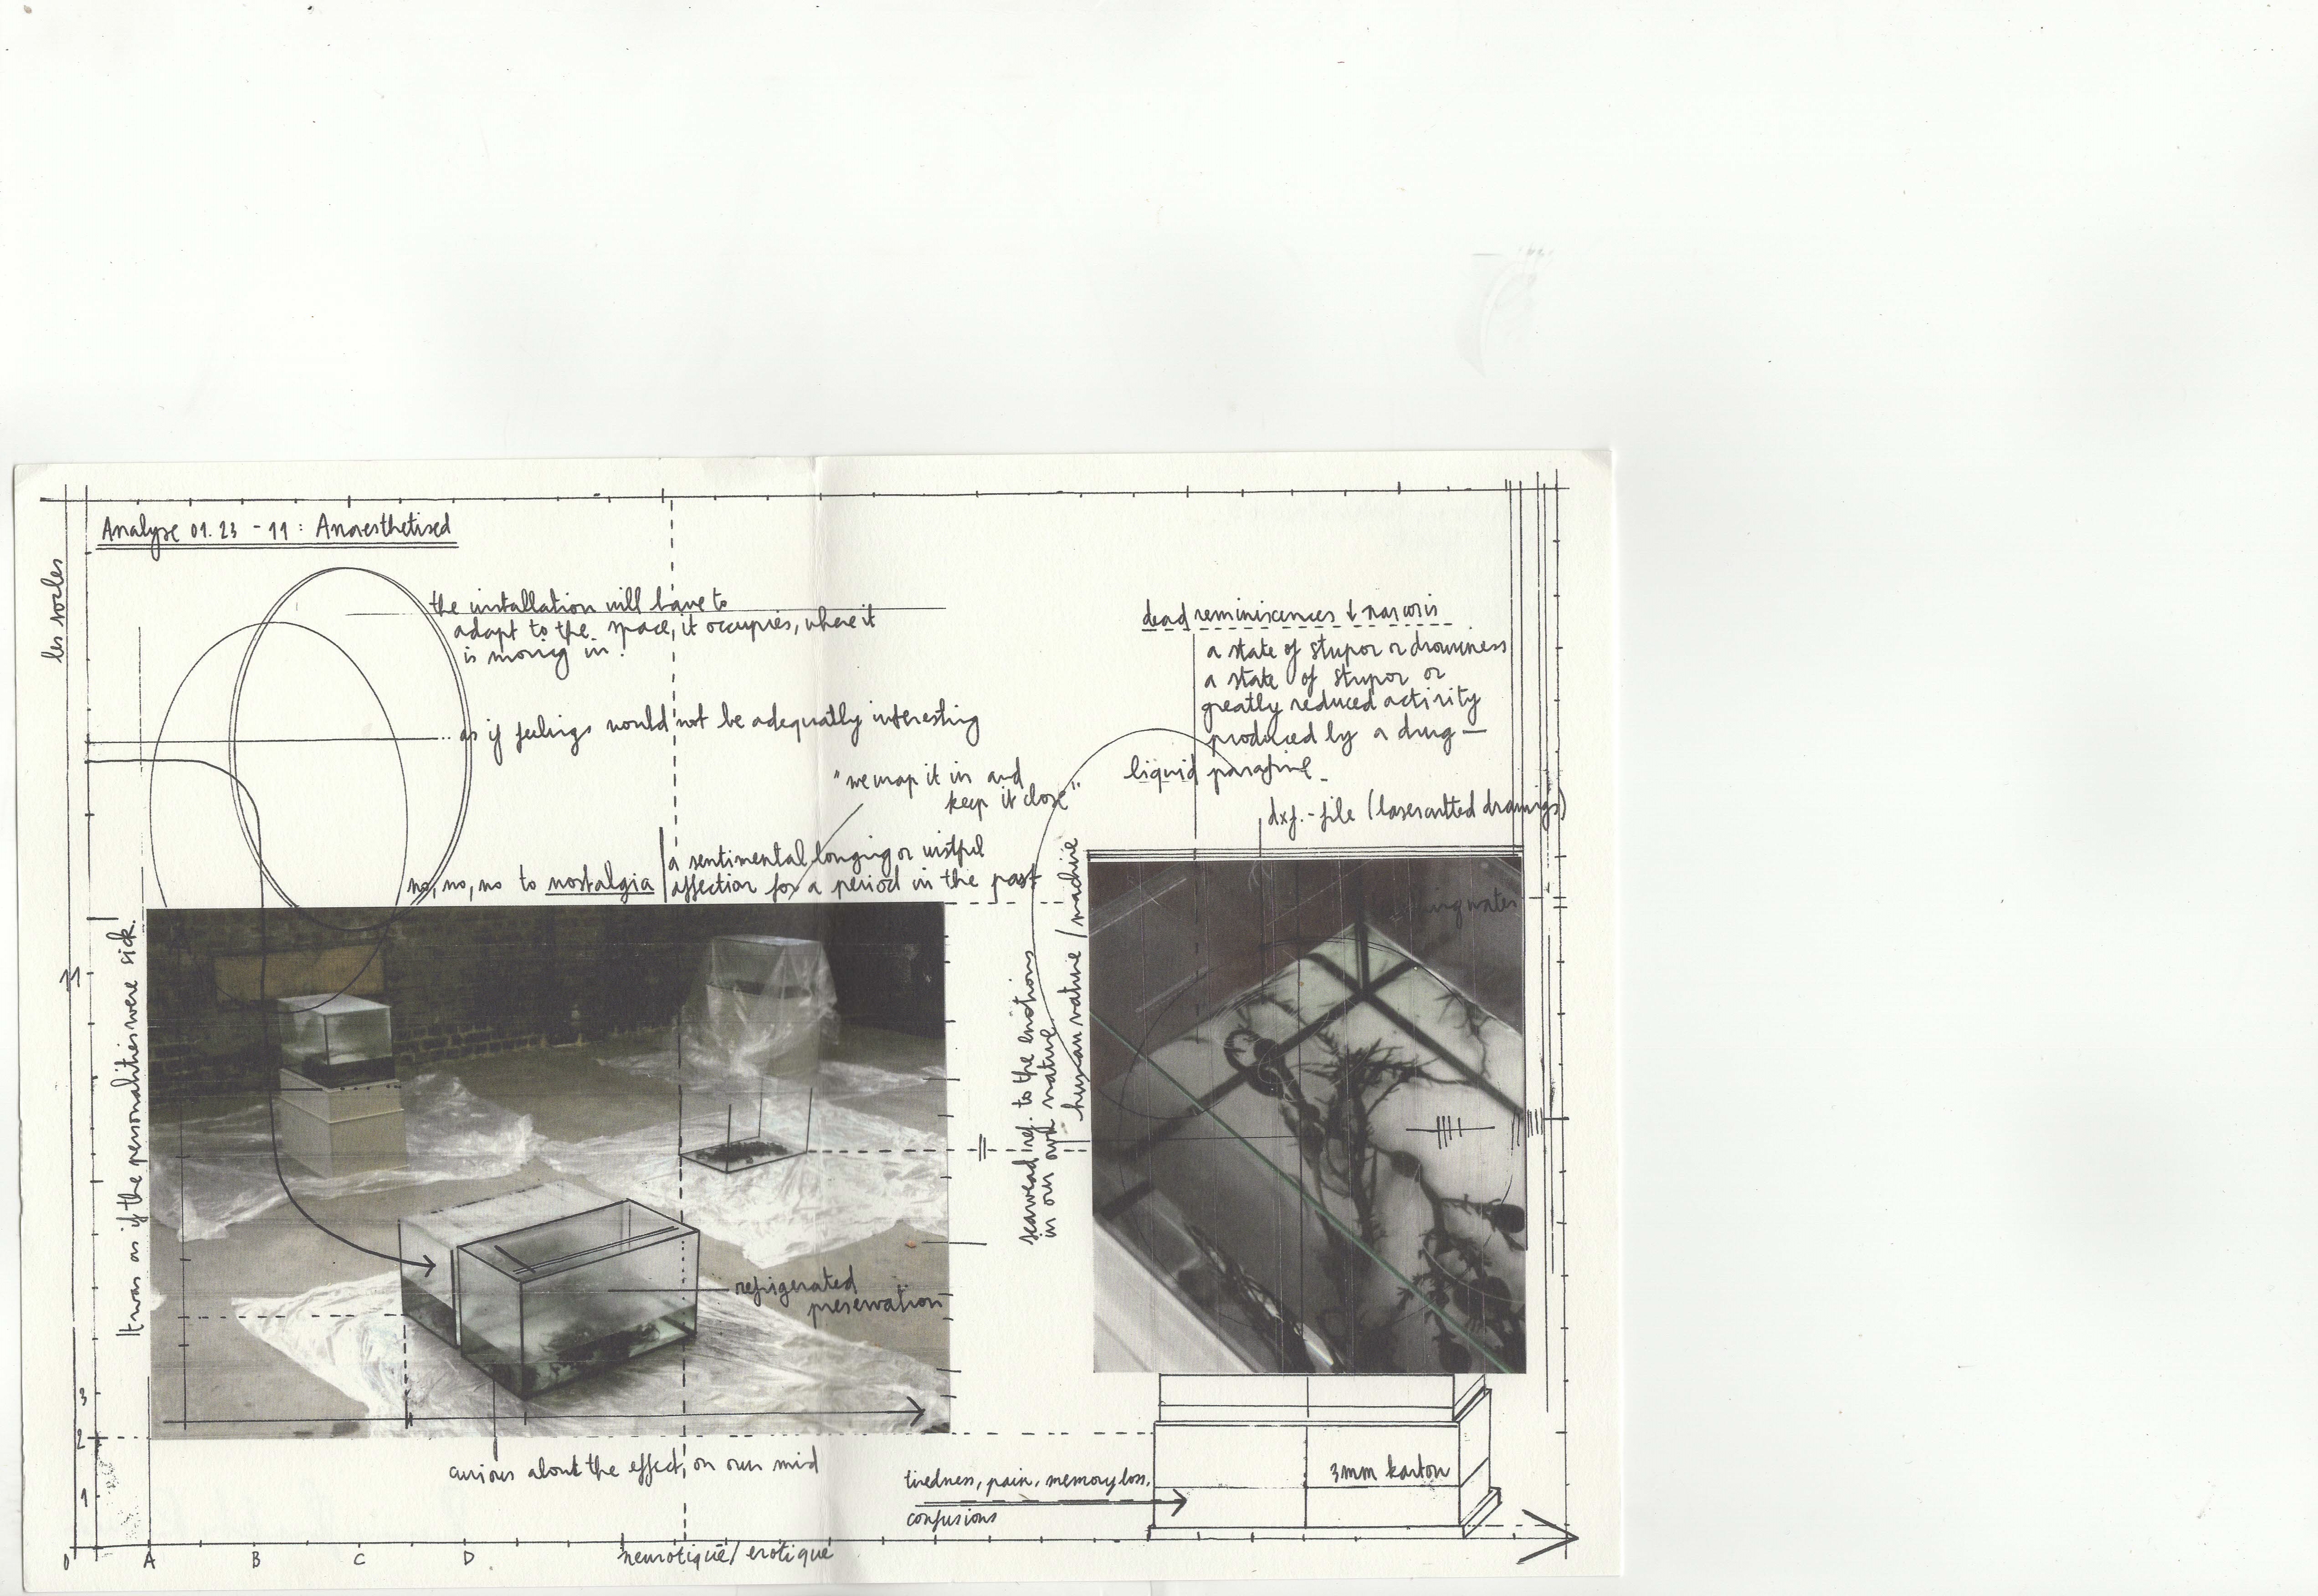 Analyse 01.23 - 11 : Anaesthetised
les socles
the installation will have to
adapt to the space, it occupies, where it
is moving in!
.. as if feelings would not be adequatly interesting
"we wrap it in and
keep it close"
no, no, no to nostalgia
a sentimental longing or wistful
affection for a period in the past
dead reminiscences & narcosis
a state of stupor or drowsiness
a state of stupor or
greatly reduced activity
produced by a drug —
liquid parafine -
dxf.-file (lasercutted drawings)
water
It was as if the personalities were sick.
seaweed ref. to the emotions
in our own nature
human nature / machine
refrigerated
preservation
curious about the effect, on our mid
tiredness, pain, memory loss,
confusions
3mm karton
11
3
2
1
0 A B C D
neurotique / erotique